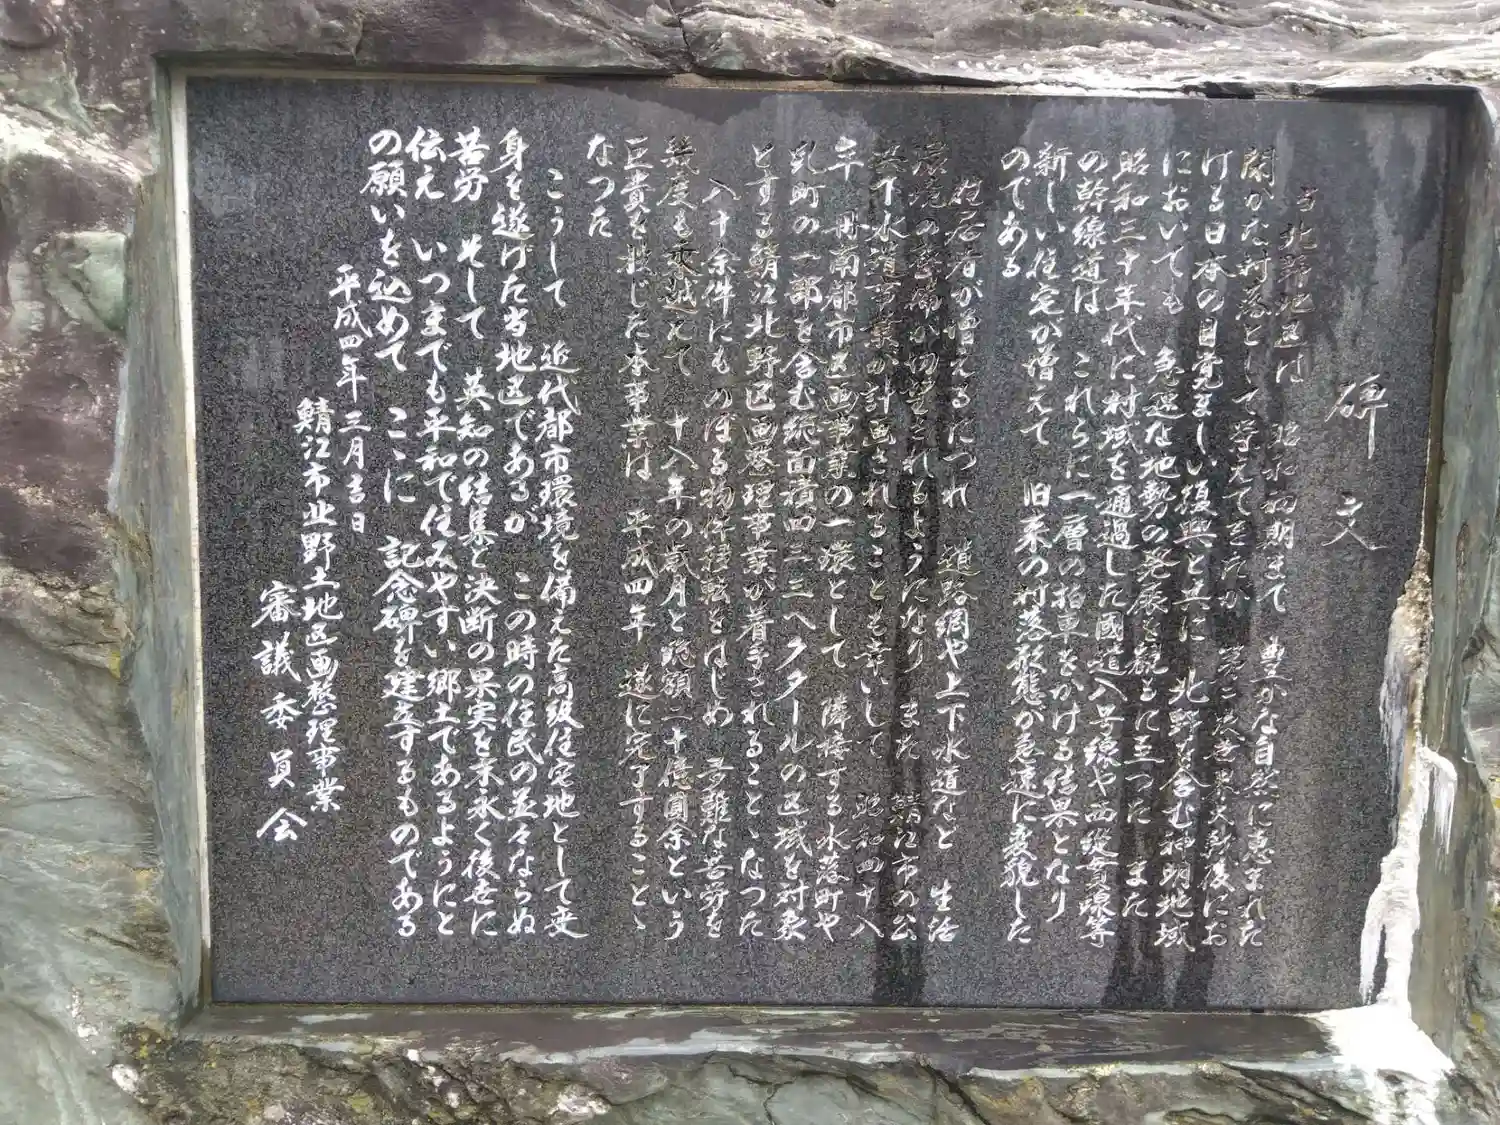 碑文
当北野地区は 昭和初期まで 豊かな自然に恵まれた
閑かな村落として栄えてきたが 第二次世界大戦後にお
ける日本の目覚ましい復興と共に 北野を含む神明地域
においても 急速な地勢の発展を観るに至つた また
昭和三十年代に村域を通過した國道八号線や西縦貫線等
の幹線道は これらに一層の拍車をかける結果となり
新しい住宅が増えて 旧来の村落形態が急速に変貌した
のである
移居者が増えるにつれ 道路網や上下水道など 生活
環境の整備が切望されるようになり また 鯖江市の公
共下水道事業が計画されることも幸いして 昭和四十八
年 丹南都市区画事業の一環として 隣接する水落町や
乳町の一部を含む総面積四二・三ヘクタールの区域を対象
とする鯖江北野区画整理事業が着手されることゝなつた
八十余件にものぼる物件移転をはじめ 多難な苦労を
幾度も乗越えて 十八年の歳月と総額二十億圓余という
巨費を投じた本事業は 平成四年 遂に完了することゝ
なつた
こうして 近代都市環境を備えた高級住宅地として変
身を遂げた当地区であるが この時の住民の並々ならぬ
苦労 そして 英知の結集と決断の果実を末永く後世に
伝え いつまでも平和で住みやすい郷土であるようにと
の願いを込めて こゝに 記念碑を建立するものである
平成四年三月吉日
鯖江市北野土地区画整理事業
審議委員会